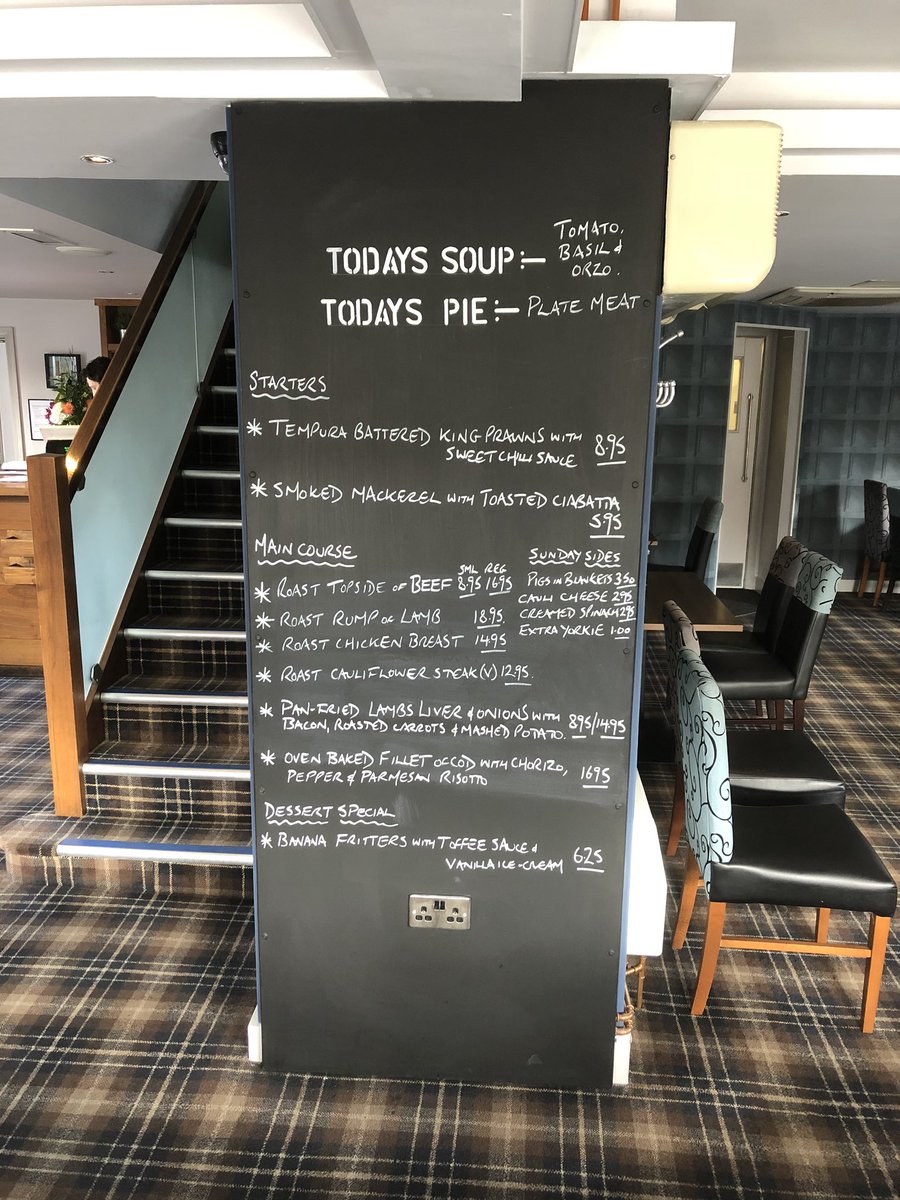 TODAYS SOUP:- TOMATO,
BASIL &
ORZO.
TODAYS PIE:- PLATE MEAT
STARTERS
* TEMPURA BATTERED KING PRAWNS WITH
SWEET CHILLI SAUCE 8.95
* SMOKED MACKEREL WITH TOASTED CIABATTA
5.95
MAIN COURSE
SML REG
* ROAST TOPSIDE OF BEEF 8.95 16.95
* ROAST RUMP OF LAMB 18.95
* ROAST CHICKEN BREAST 14.95
* ROAST CAULIFLOWER STEAK (V) 12.95.
SUNDAY SIDES
PIGS IN BLANKETS 3.50
CAULI CHEESE 2.95
CREAMED SPINACH 2.95
EXTRA YORKIE 1.00
* PAN-FRIED LAMBS LIVER & ONIONS WITH
BACON, ROASTED CARROTS & MASHED POTATO. 8.95/14.95
* OVEN BAKED FILLET OF COD WITH CHORIZO,
PEPPER & PARMESAN RISOTTO 16.95
DESSERT SPECIAL
* BANANA FRITTERS WITH TOFFEE SAUCE &
VANILLA ICE-CREAM 6.25